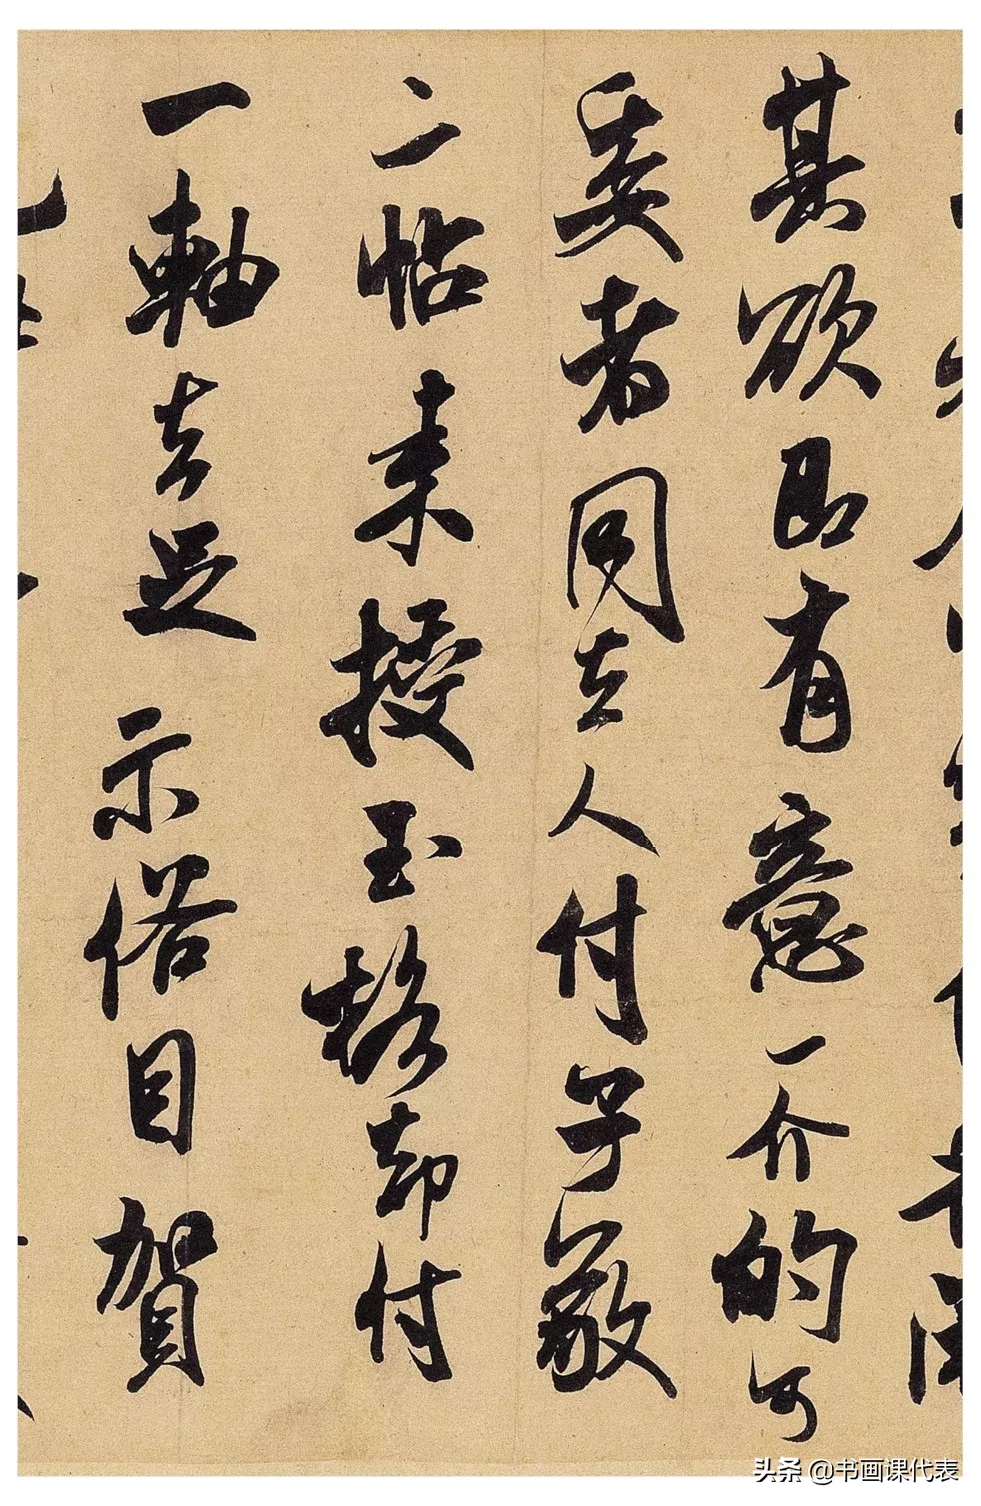 甚欲即有意一介的可
委者同去人付子敬
二帖来授玉格却付
一軸去足 示俗目 賀
头条 @书画课代表